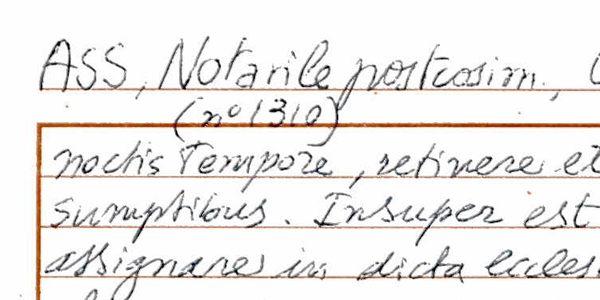 ASS, Notarile postcosim.,
(n° 1310)
noctis Tempore, retinere et
sumptibus. Insuper est
assignare in dicta eccles